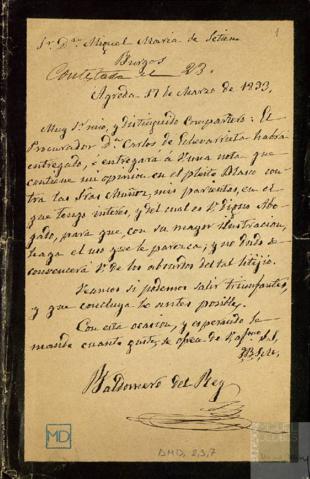 Sr. Dn. Miguel María de Setien
Burgos
Contestada el 23.
Agreda 17 de Marzo de 1893.
Muy Sr. mio, y distinguido Compañero: El
Procurador Dn. Carlos de Echevarrieta habrá
entregado, ó entregará á V. una nota que
contiene mi opinion en el pleito Blasco con-
tra las Sras Muñoz, mis parientas, en el
que tengo interés, y del cual es V. digno Abo-
gado, para que, con su mayor ilustracion,
haga el uso que le parezca; y no dudo se
convencerá V. de los absurdos del tal litigio.
Veamos si podemos salir triunfantes,
y que concluya lo antes posible,
Con esta ocasion, y esperando le
mande cuanto guste, se ofrece de V. afmo. S.S.
Baldomero del Rey
MD
DMD, 2,3,7